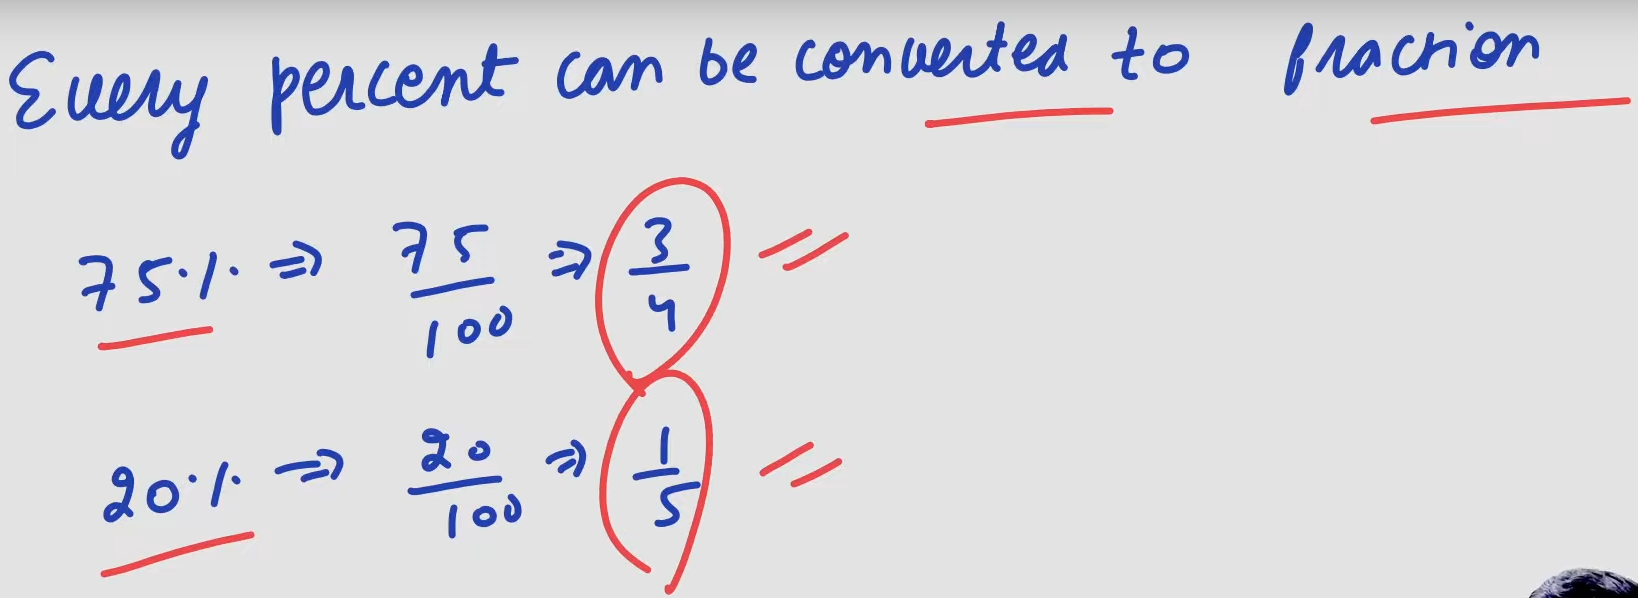 Every percent can be converted to fraction
75% ⇒ 75/100 ⇒ 3/4
20% ⇒ 20/100 ⇒ 1/5